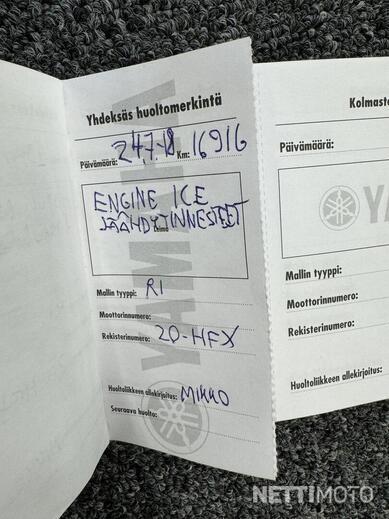 Yhdeksäs huoltomerkintä
Päivämäärä: 24,7.-18 Km: 16916
ENGINE ICE
JÄÄHDYTINNESTEET
Leima
YAMAHA
Mallin tyyppi: R1
Moottorinumero:
Rekisterinumero: 20-HFX
Huoltoliikkeen allekirjoitus: MIKKO
Seuraava huolto:
Kolmasto
Päivämäärä:
YA
Mallin tyyppi:
Moottorinumero:
Rekisterinumero:
Huoltoliikkeen allekirjoitus:
NETTIMOTO